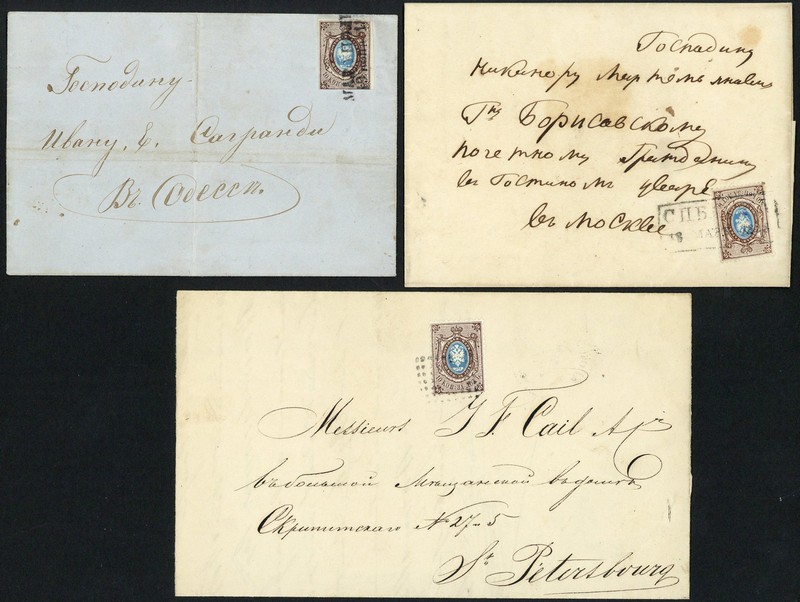 Господину
Ивану, Е. Сагранди
Въ Одессѣ.
Господину
Никанору
Гну Борисавскому
почетному Гражданину
въ Гостиномъ дваре
въ Москве
СПБ
Messieurs J. F. Cail & Cie
въ большой Мѣщанской въ домѣ
Скрипитскаго № 27-5
St. Petersbourg